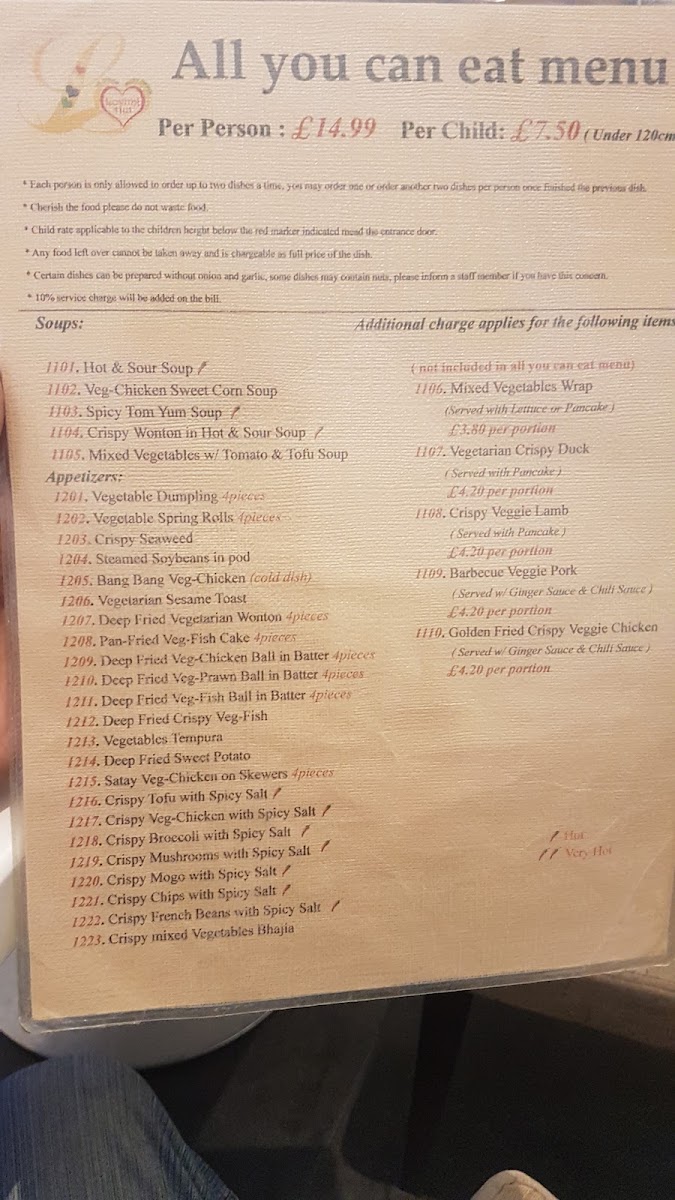 Loving Hut
All you can eat menu
Per Person : £14.99 Per Child: £7.50 ( Under 120cm
* Each person is only allowed to order up to two dishes a time, you may order one or order another two dishes per person once finished the previous dish.
* Cherish the food please do not waste food.
* Child rate applicable to the children height below the red marker indicated the entrance door.
* Any food left over cannot be taken away and is chargeable as full price of the dish.
* Certain dishes can be prepared without onion and garlic, some dishes may contain nuts, please inform a staff member if you have this concern.
* 10% service charge will be added on the bill.
Soups:
1101. Hot & Sour Soup
1102. Veg-Chicken Sweet Corn Soup
1103. Spicy Tom Yum Soup
1104. Crispy Wonton in Hot & Sour Soup
1105. Mixed Vegetables w/ Tomato & Tofu Soup
Appetizers:
1201. Vegetable Dumpling 4pieces
1202. Vegetable Spring Rolls 4pieces
1203. Crispy Seaweed
1204. Steamed Soybeans in pod
1205. Bang Bang Veg-Chicken (cold dish)
1206. Vegetarian Sesame Toast
1207. Deep Fried Vegetarian Wonton 4pieces
1208. Pan-Fried Veg-Fish Cake 4pieces
1209. Deep Fried Veg-Chicken Ball in Batter 4pieces
1210. Deep Fried Veg-Prawn Ball in Batter 4pieces
1211. Deep Fried Veg-Fish Ball in Batter 4pieces
1212. Deep Fried Crispy Veg-Fish
1213. Vegetables Tempura
1214. Deep Fried Sweet Potato
1215. Satay Veg-Chicken on Skewers 4pieces
1216. Crispy Tofu with Spicy Salt
1217. Crispy Veg-Chicken with Spicy Salt
1218. Crispy Broccoli with Spicy Salt
1219. Crispy Mushrooms with Spicy Salt
1220. Crispy Mogo with Spicy Salt
1221. Crispy Chips with Spicy Salt
1222. Crispy French Beans with Spicy Salt
1223. Crispy mixed Vegetables Bhajia
Additional charge applies for the following items
( not included in all you can eat menu)
1106. Mixed Vegetables Wrap
(Served with Lettuce or Pancake )
£3.80 per portion
1107. Vegetarian Crispy Duck
( Served with Pancake )
£4.20 per portion
1108. Crispy Veggie Lamb
( Served with Pancake )
£4.20 per portion
1109. Barbecue Veggie Pork
( Served w/ Ginger Sauce & Chili Sauce )
£4.20 per portion
1110. Golden Fried Crispy Veggie Chicken
( Served w/ Ginger Sauce & Chili Sauce )
£4.20 per portion
Hot
Very Hot